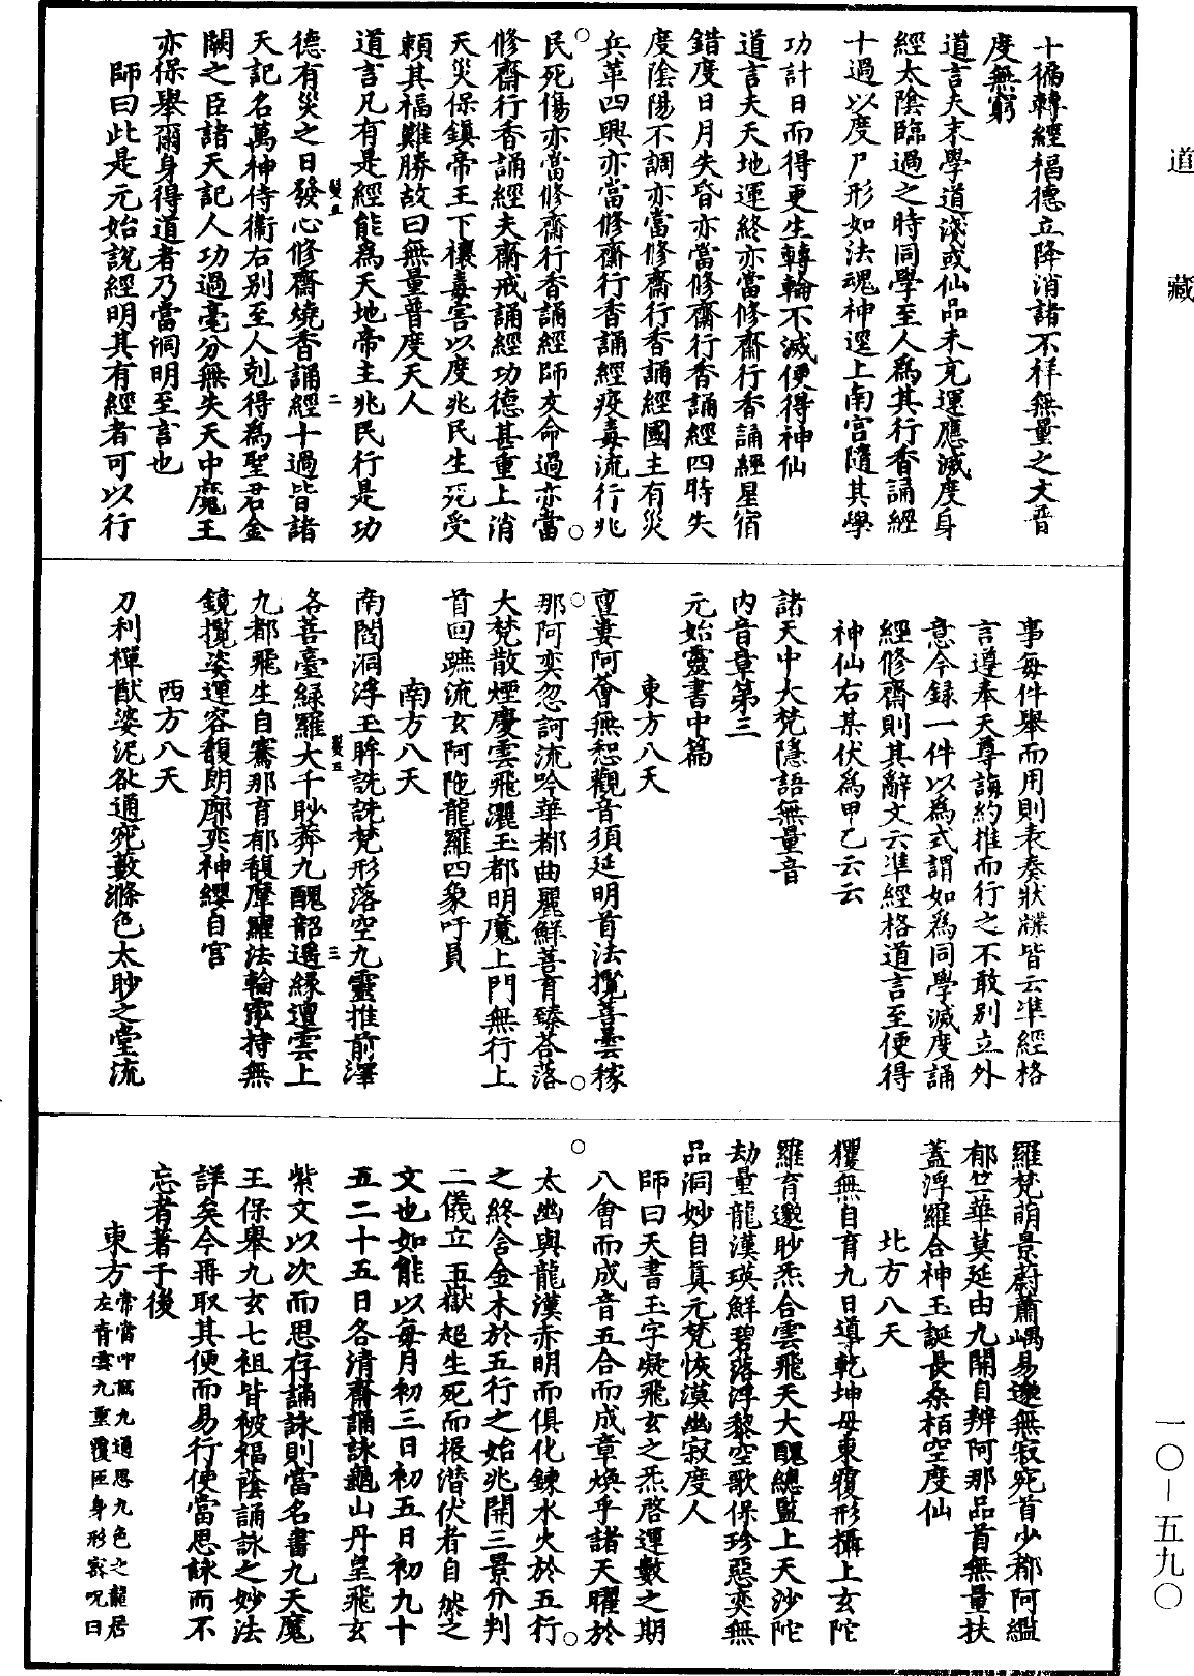 道藏
十徧轉經福德立降消諸不祥無量之文普
度無窮
道言夫末學道淺或仙品未充運應滅度身
經太陰臨過之時同學至人爲其行香誦經
十過以度尸形如法魂神逕上南宮隨其學
功計日而得更生轉輪不滅便得神仙
道言夫天地運終亦當修齋行香誦經星宿
錯度日月失昏亦當修齋行香誦經四時失
度陰陽不調亦當修齋行香誦經國主有災
兵革四興亦當修齋行香誦經疫毒流行兆
民死傷亦當修齋行香誦經師友命過亦當
修齋行香誦經夫齋戒誦經功德甚重上消
天災保鎮帝王下禳毒害以度兆民生死受
賴其福難勝故曰無量普度天人
道言凡有是經能爲天地帝主兆民行是功
德有災之日發心修齋燒香誦經十過皆諸
天記名萬神侍衛右別至人剋得爲聖君金
闕之臣諸天記人功過毫分無失天中魔王
亦保舉爾身得道者乃當洞明至言也
師曰此是元始說經明其有經者可以行
事每件舉而用則表奏狀牒皆云準經格
言遵奉天尊誨約推而行之不敢別立外
意今録一件以爲式謂如爲同學滅度誦
經修齋則其辭文云準經格道言至便得
神仙右某伏爲甲乙云云
諸天中大梵隱語無量音
內音章第三
元始靈書中篇
東方八天
亶婁阿薈無惒觀音須延明首法攬菩曇稼
那阿奕忽訶流吟華都曲麗鮮菩育臻荅落
大梵散煙慶雲飛灑玉都明魔上門無行上
首回蹠流玄阿陁龍羅四象吁員
南方八天
南閻洞浮玉眸詵詵梵形落空九靈推前澤
各菩臺緑羅大千眇莽九醜韶遏緣邅雲上
九都飛生自騫那育郁馥摩羅法輪霐持無
鏡攬姿運容馥朗廓奕神纓自宮
西方八天
刀利禪猷婆泥咎通宛藪滌色太眇之堂流
羅梵萌景蔚蕭嵎易邈無寂宛首少都阿㠣
郁竺華莫延由九開自辨阿那品首無量扶
蓋浮羅合神玉誕長桑栢空度仙
北方八天
玃無自育九日導乾坤母東覆形攝上玄陀
羅育邈眇炁合雲飛天大醜總監上天沙陀
劫量龍漢瑛鮮碧落浮黎空歌保珍惡奕無
品洞妙自真元梵恢漠幽寂度人
師曰天書玉字凝飛玄之炁啓運數之期
八會而成音五合而成章煥乎諸天曜於
太幽與龍漢赤明而俱化鍊水火於五行
之終含金木於五行之始兆開三景分判
二儀立五嶽超生死而振潛伏者自然之
文也如能以每月初三日初五日初九十
五二十五日各清齋誦詠龜山丹皇飛玄
紫文以次而思存誦詠則當名書九天魔
王保舉九玄七祖皆被福蔭誦詠之妙法
詳矣今再取其便而易行使當思詠而不
忘者著于後
東方常當中
左青雲九重覆匝身形密呪曰
一〇—五九〇